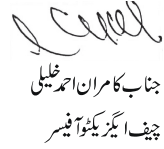 جناب کامران احمد خلیلی
چیف ایگزیکٹو آفیسر